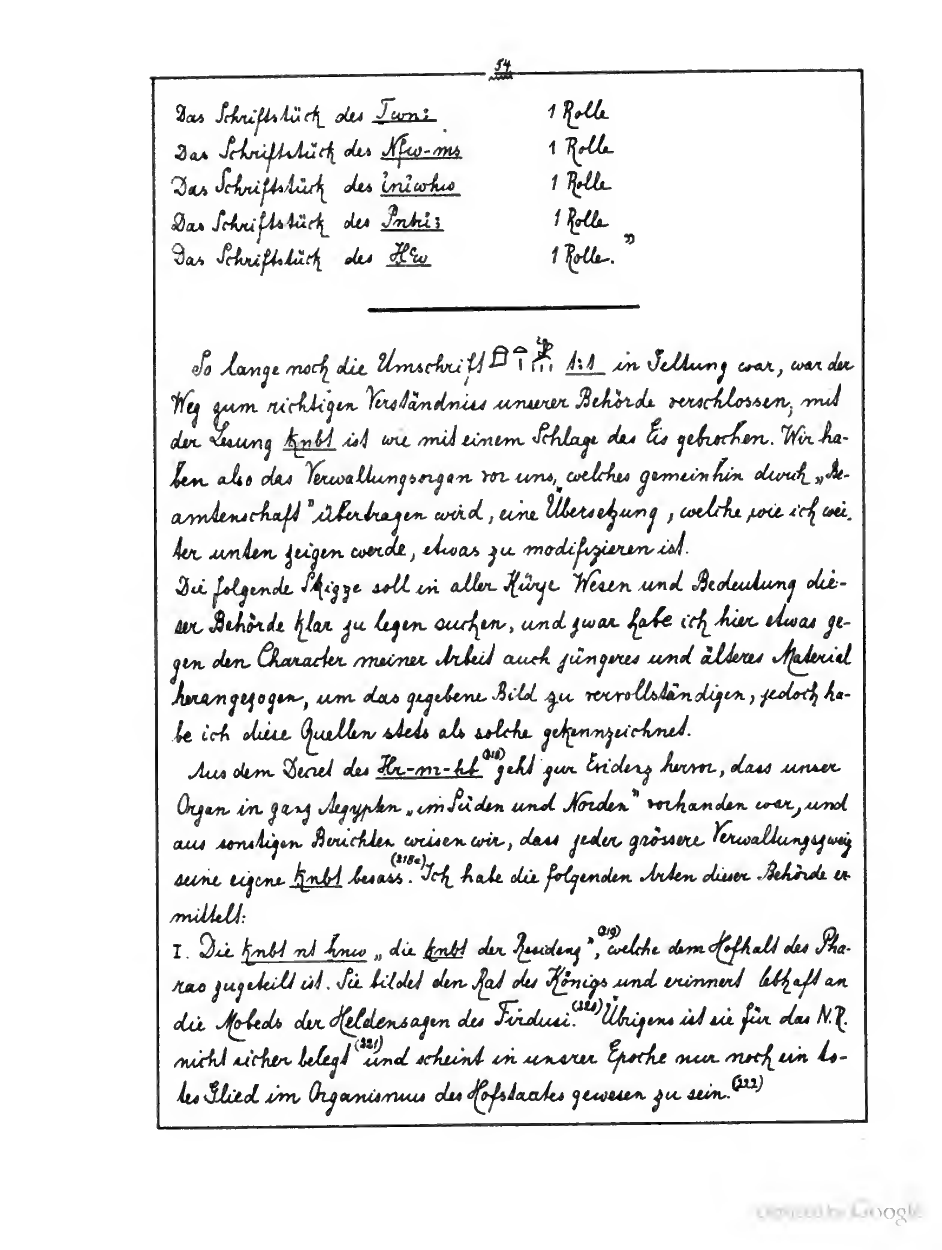 54
Das Schriftstück des Twn: 1 Rolle
Das Schriftstück des Nfw-ms 1 Rolle
Das Schriftstück des iniwhw 1 Rolle
Das Schriftstück des 1 Rolle
Das Schriftstück des 1 Rolle."
So lange noch die Umschrift in Geltung war, war der
Weg zum richtigen Verständniss unserer Behörde verschlossen, mit
der Lesung ḳnbt ist wie mit einem Schlage das Eis gebrochen. Wir ha-
ben also das Verwaltungsorgan vor uns, welches gemeinhin durch „Be-
amtenschaft" übertragen wird, eine Übersetzung, welche, wie ich wei-
ter unten zeigen werde, etwas zu modifizieren ist.
Die folgende Skizze soll in aller Kürze Wesen und Bedeutung die-
ser Behörde klar zu legen suchen, und zwar habe ich hier etwas ge-
gen den Character meiner Arbeit auch jüngeres und älteres Material
herangezogen, um das gegebene Bild zu vervollständigen, jedoch ha-
be ich diese Quellen stets als solche gekennzeichnet.
Aus dem Decret des Ḥr-m-ḥb (218) geht zur Evidenz hervor, dass unser
Organ in ganz Aegypten „im Süden und Norden" vorhanden war, und
aus sonstigen Berichten wissen wir, dass jeder grössere Verwaltungszweig
seine eigene ḳnbt besass. (218a) Ich habe die folgenden Arten dieser Behörde er
mittelt:
I. Die ḳnbt nt ẖnw „die ḳnbt der Residenz", (219) welche dem Hofhalt des Pha-
rao zugeteilt ist. Sie bildet den Rat des Königs und erinnert lebhaft an
die Mobeds der Heldensagen des Firdusi. (220) Übrigens ist sie für das N.R.
nicht sicher belegt (221) und scheint in unsrer Epoche nur noch ein to-
tes Glied im Organismus des Hofstaates gewesen zu sein. (222)
Digitized by Google